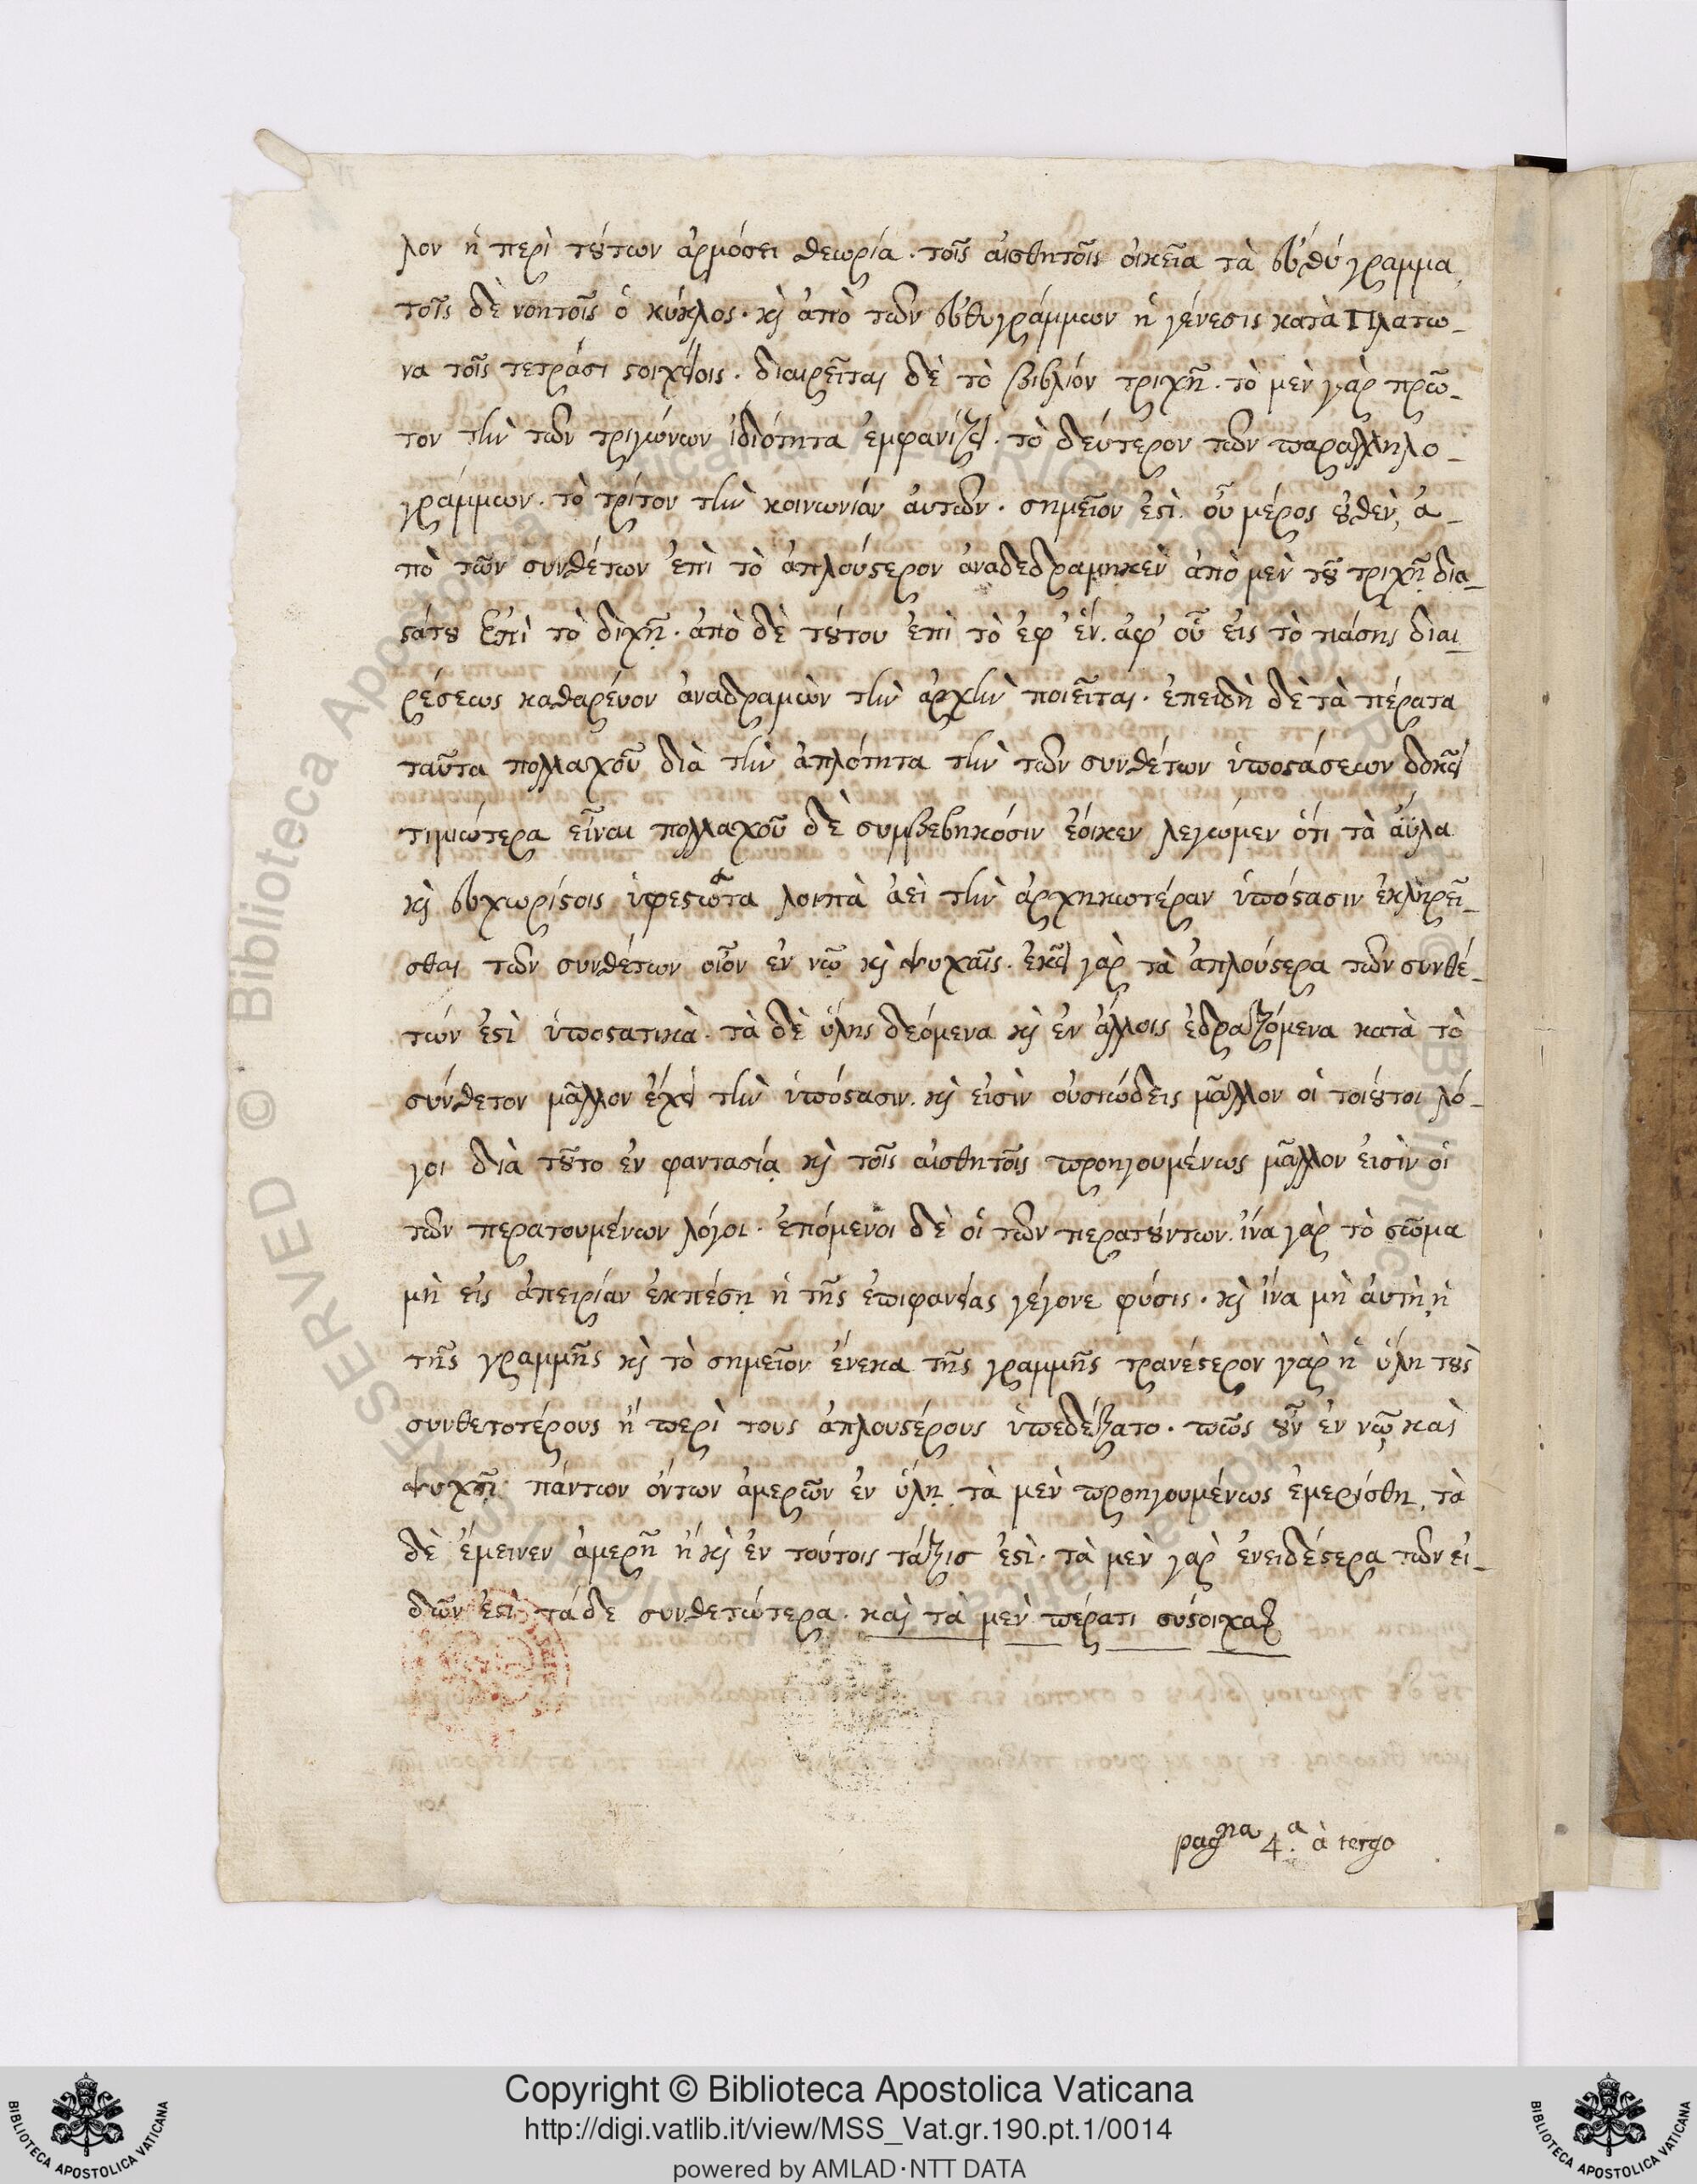 λον ἡ περὶ τούτων ἁρμόσει θεωρία· τοῖς αἰσθητοῖς οἰκεῖα τὰ εὐθύγραμμα,
τοῖς δὲ νοητοῖς ὁ κύκλος· κὶ ἀπὸ τῶν εὐθυγράμμων ἡ γένεσις κατὰ Πλάτω-
να τοῖς τετράσι στοιχείοις· διαιρεῖται δὲ τὸ βιβλίον τριχῆ· τὸ μὲν γὰρ πρῶ-
τον τὴν τῶν τριγώνων ἰδιότητα ἐμφανίζει· τὸ δεύτερον τῶν παραλληλο-
γράμμων· τὸ τρίτον τὴν κοινωνίαν αὐτῶν· σημεῖον ἐστὶ οὗ μέρος οὐθὲν, ἀ-
πὸ τῶν συνθέτων ἐπὶ τὸ ἁπλούστερον ἀναδεδραμηκὲν ἀπὸ μὲν τοῦ τριχῇ δια-
στάτου ἐπὶ τὸ διχῇ· ἀπὸ δὲ τούτου ἐπὶ τὸ ἐφ' ἕν· ἀφ' οὗ εἰς τὸ πάσης διαι-
ρέσεως καθαρεύον ἀναδραμὼν τὴν ἀρχὴν ποιεῖται· ἐπειδὴ δὲ τὰ πέρατα
ταῦτα πολλαχοῦ διὰ τὴν ἁπλότητα τὴν τῶν συνθέτων ὑποστάσεων δοκεῖ
τιμιώτερα εἶναι πολλαχοῦ δὲ συμβεβηκόσιν ἔοικεν λεγώμεν ὅτι τὰ ἄϋλα
κὶ εὐχωρίστοις ὑφεστῶτα λοιπὰ ἀεὶ τὴν ἀρχηκωτέραν ὑπόστασιν ἐκληρεῖ-
σθαι τῶν συνθέτων οἷον ἐν νῷ κὶ ψυχαῖς· ἐκεῖ γὰρ τὰ ἁπλούστερα τῶν συνθέ-
των ἐστὶ ὑποστατικὰ· τὰ δὲ ὕλης δεόμενα κὶ ἐν ἄλλοις ἑδραζόμενα κατὰ τὸ
σύνθετον μᾶλλον ἔχει τὴν ὑπόστασιν· κὶ εἰσὶν οὐσιώδεις μᾶλλον οἱ τοιούτοι λό-
γοι διὰ τοῦτο ἐν φαντασίᾳ κὶ τοῖς αἰσθητοῖς προηγουμένως μᾶλλον εἰσὶν οἱ
τῶν περατουμένων λόγοι· ἑπόμενοι δὲ οἱ τῶν περατούντων· ἵνα γὰρ τὸ σῶμα
μὴ εἰς ἀπειρίαν ἐκπέσῃ ἡ τῆς ἐπιφανείας γέγονε φύσις· κὶ ἵνα μὴ αὐτὴ, ἡ
τῆς γραμμῆς κὶ τὸ σημεῖον ἕνεκα τῆς γραμμῆς τρανέστερον γὰρ ἡ ὕλη τοὺς
συνθετοτέρους ἢ περὶ τους ἁπλουστέρους ὑπεδέξατο· πῶς οὖν ἐν νῷ καὶ
ψυχῇ πάντων ὄντων ἀμερῶν ἐν ὕλῃ τὰ μὲν προηγουμένως ἐμερίσθη, τὰ
δὲ ἔμεινεν ἀμερῆ ἢ κὶ ἐν τούτοις τάξισ ἐστὶ· τὰ μὲν γὰρ ἑνειδέστερα τῶν εἰ-
δῶν ἐστὶ τάδε συνθετώτερα· καὶ τὰ μὲν πέρατι σύστοιχα
pagna 4.a à tergo
Copyright © Biblioteca Apostolica Vaticana
http://digi.vatlib.it/view/MSS_Vat.gr.190.pt.1/0014
powered by AMLAD·NTT DATA
BIBLIOTECA APOSTOLICA VATICANA
BIBLIOTECA APOSTOLICA VATICANA